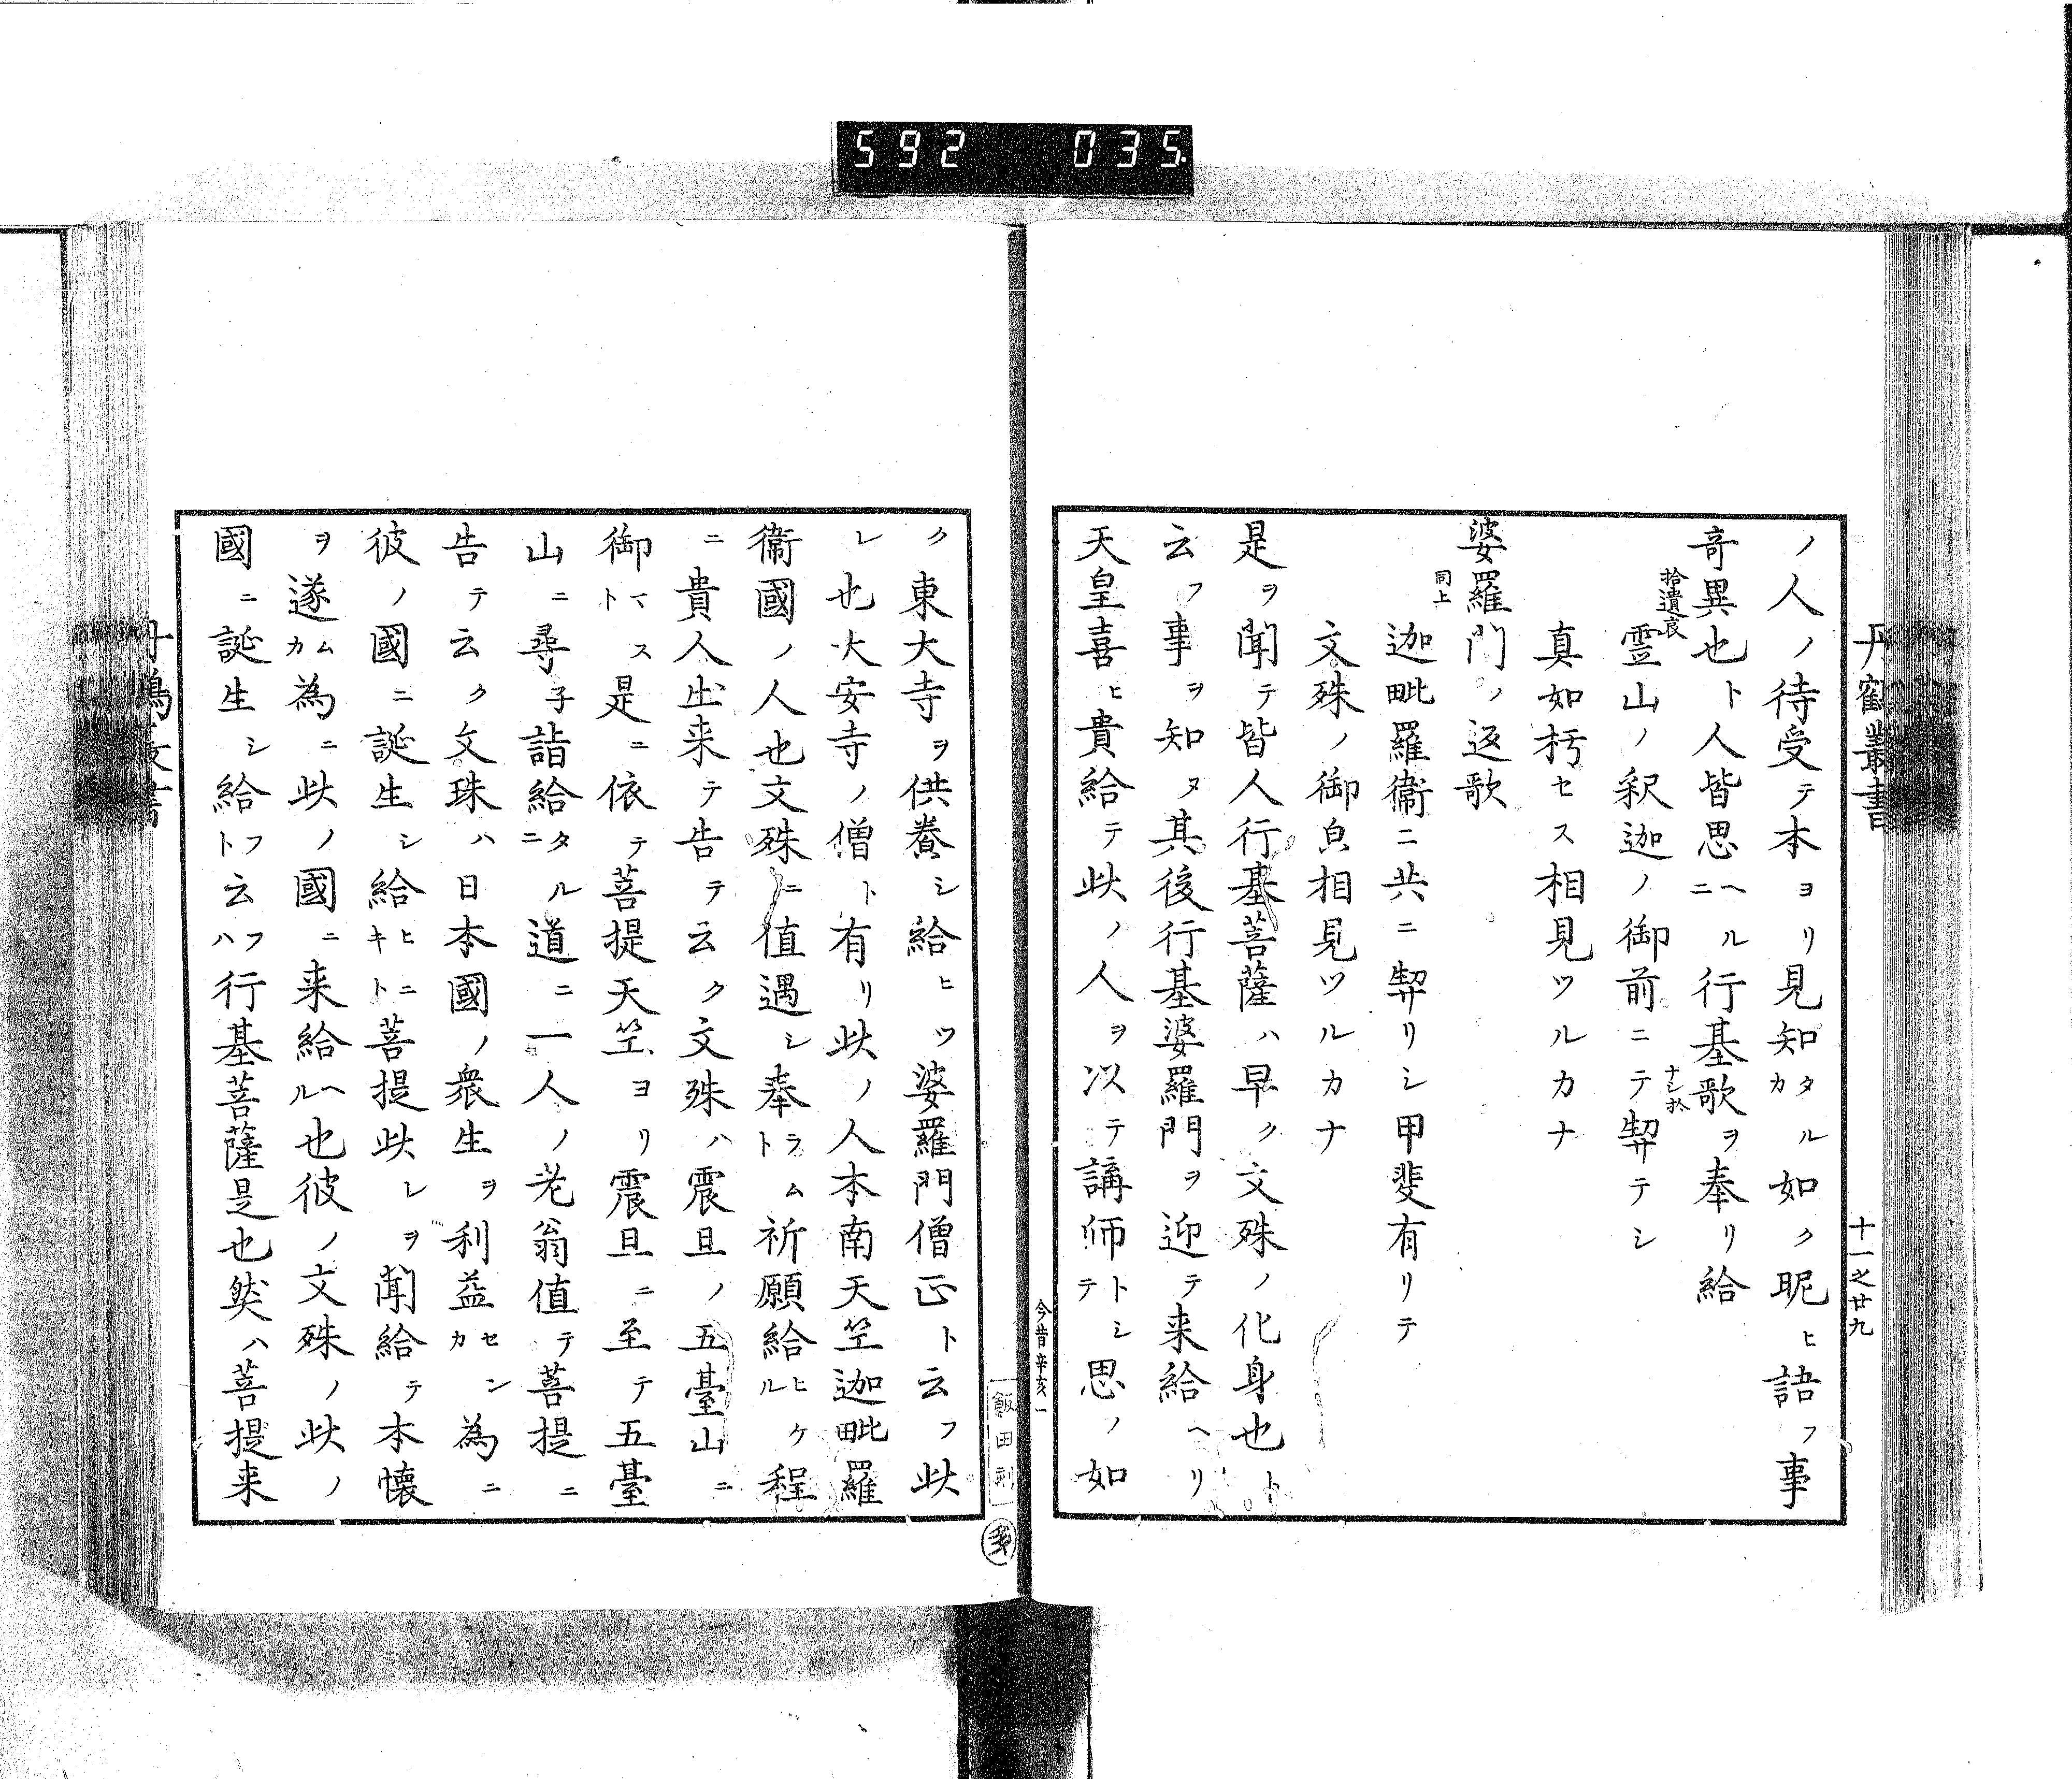 592 035
丹鶴叢書
十一之廿九
ノ人ノ待受テ本ヨリ見知タルカ如ク昵ヒ語フ事
奇異也ト人皆思ヘルニ行基歌ヲ奉リ給
拾遺哀
霊山ノ釈迦ノ御前ニテ契テシ
ナシ扵
真如朽セス相見ツルカナ
婆羅門ノ返歌
同上
迦毗羅衞ニ共ニ契リシ甲斐有リテ
文殊ノ御㒵相見ツルカナ
是ヲ聞テ皆人行基菩薩ハ早ク文殊ノ化身也ト
云フ事ヲ知ヌ其後行基婆羅門ヲ迎テ来給ヘリ
天皇喜ヒ貴給テ此ノ人ヲ以テ講師トシテ思ノ如
今昔辛亥一
飯田刻
ク東大寺ヲ供養シ給ヒツ婆羅門僧正ト云フ此
レ也大安寺ノ僧ト有リ此ノ人本南天竺迦毗羅
衞國ノ人也文殊ニ値遇シ奉ラムト祈願給ヒケル程
ニ貴人出来テ告テ云ク文殊ハ震旦ノ五臺山ニ
御マスト是ニ依テ菩提天竺ヨリ震旦ニ至テ五臺
山ニ尋子詣給タルニ道ニ一人ノ老翁値テ菩提ニ
告テ云ク文珠ハ日本國ノ衆生ヲ利益センカ為ニ
彼ノ國ニ誕生シ給ヒニキト菩提此レヲ聞給テ本懐
ヲ遂ムカ為ニ此ノ國ニ来給ヘル也彼ノ文殊ノ此ノ
國ニ誕生シ給フト云フハ行基菩薩是也然ハ菩提来